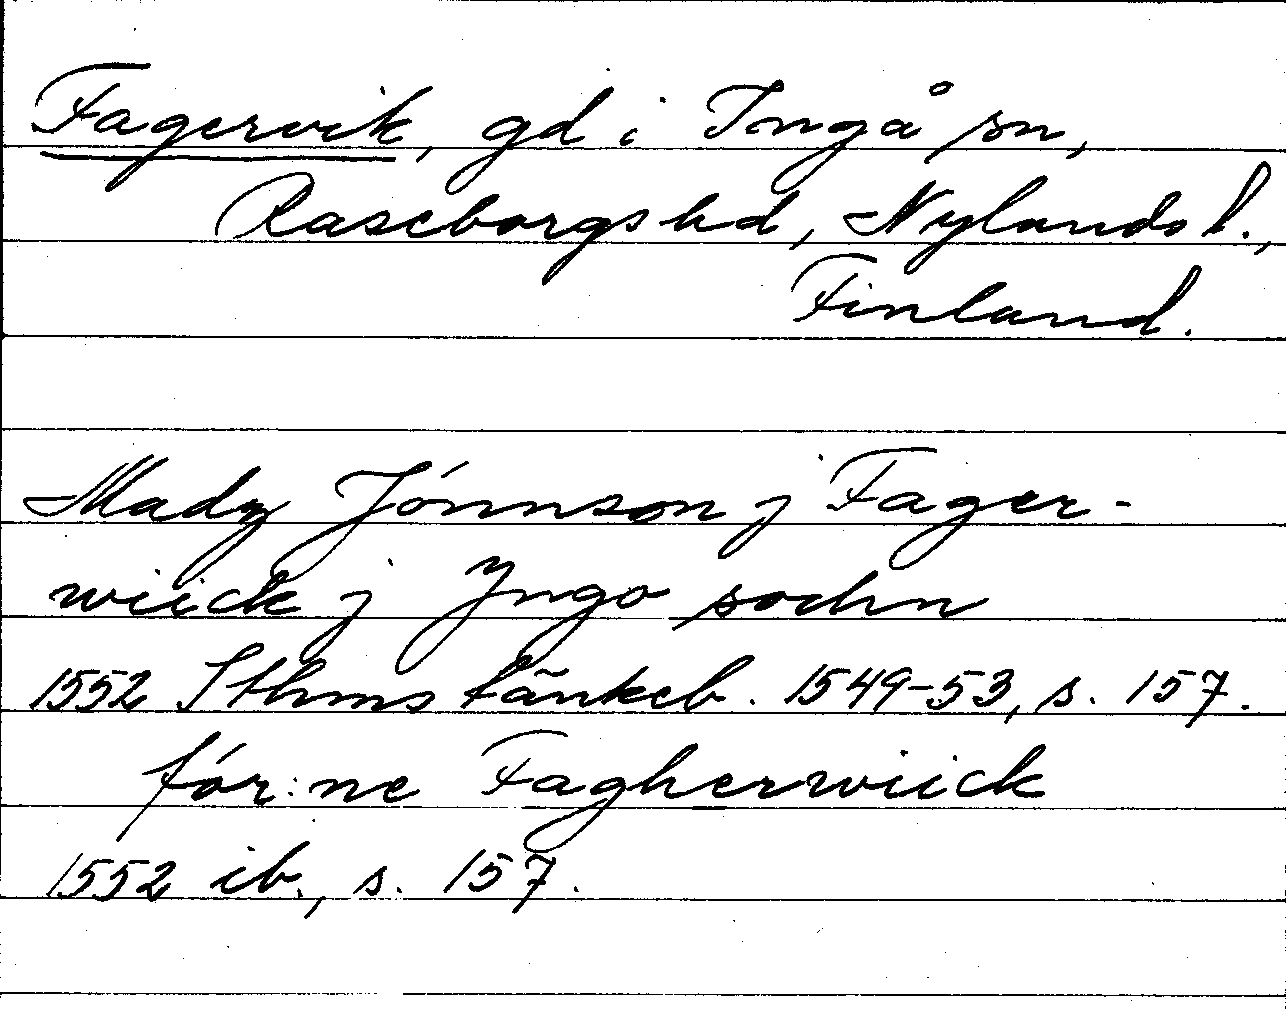 Fagervik, gd i Ingå sn,
Raseborgs hd, Nylands l.,
Finland.
Madz Jónnson j Fager-
wiick j Yngo sochn
1552 Sthms tänkeb. 1549-53, s. 157.
fór:ne Fagherwiick
1552 ib., s. 157.